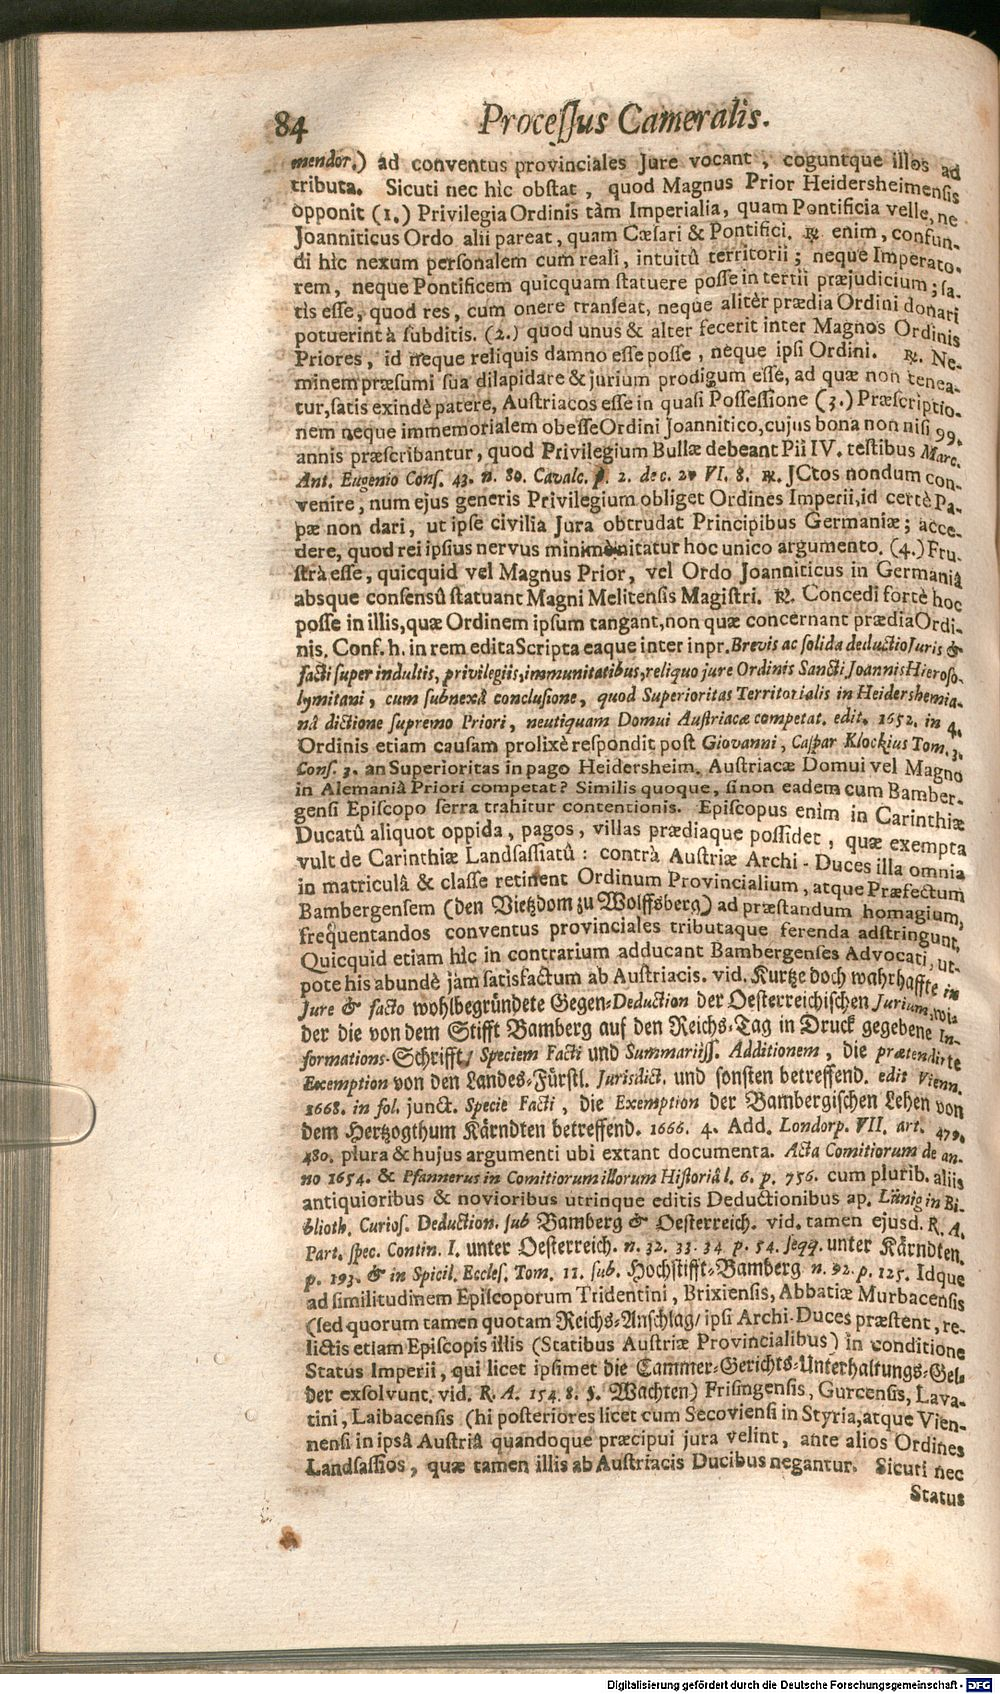 84 Processus Cameralis.
mendor.) ad conventus provinciales Jure vocant, coguntque illos ad
tributa. Sicuti nec hìc obstat, quod Magnus Prior Heidersheimensis
opponit (1.) Privilegia Ordinis tàm Imperialia, quam Pontificia velle, ne
Joanniticus Ordo alii pareat, quam Cæsari & Pontifici. ℞. enim, confun-
di hìc nexum personalem cum reali, intuitû territorii; neque Imperato-
rem, neque Pontificem quicquam statuere posse in tertii præjudicium; sa-
tìs esse, quod res, cum onere transeat, neque alitèr prædia Ordini donari
potuerint à subditis. (2.) quod unus & alter fecerit inter Magnos Ordinis
Priores, id neque reliquis damno esse posse, neque ipsi Ordini. ℞. Ne-
minem præsumi sua dilapidare & jurium prodigum esse, ad quæ non tenea-
tur, satis exindè patere, Austriacos esse in quasi Possessione (3.) Præscriptio-
nem neque immemorialem obesse Ordini Joannitico, cujus bona non nisi 99.
annis præscribantur, quod Privilegium Bullæ debeant Pii IV. testibus Marc.
Ant. Eugenio Cons. 43. n. 80. Cavalc. p. 2. dec. 20 VI. 8. ℞. JCtos nondum con-
venire, num ejus generis Privilegium obliget Ordines Imperii, id certè Pa-
pæ non dari, ut ipse civilia Jura obtrudat Principibus Germaniæ; acce-
dere, quod rei ipsius nervus minimè nitatur hoc unico argumento. (4.) Fru-
strà esse, quicquid vel Magnus Prior, vel Ordo Joanniticus in Germaniâ
absque consensû statuant Magni Melitensis Magistri. ℞. Concedi fortè hoc
posse in illis, quæ Ordinem ipsum tangant, non quæ concernant prædia Ordi-
nis. Conf. h. in rem edita Scripta eaque inter inpr. Brevis ac solida deductio Juris &
facti super indultis, privilegiis, immunitatibus, reliquo jure Ordinis Sancti Joannis Hieroso-
lymitani, cum subnexâ conclusione, quod Superioritas Territorialis in Heidershemia-
nâ dictione supremo Priori, neutiquam Domui Austriacæ competat. edit. 1652. in 4.
Ordinis etiam causam prolixè respondit post Giovanni, Caspar Klockius Tom. 3.
Cons. 3. an Superioritas in pago Heidersheim, Austriacæ Domui vel Magno
in Alemaniâ Priori competat? Similis quoque, si non eadem cum Bamber-
gensi Episcopo serra trahitur contentionis. Episcopus enim in Carinthiæ
Ducatû aliquot oppida, pagos, villas prædiaque possidet, quæ exempta
vult de Carinthiæ Landsassiatû: contrà Austriæ Archi-Duces illa omnia
in matriculâ & classe retinent Ordinum Provincialium, atque Præfectum
Bambergensem (den Vietzdom zu Wolffsberg) ad præstandum homagium,
frequentandos conventus provinciales tributaque ferenda adstringunt,
Quicquid etiam hìc in contrarium adducant Bambergenses Advocati, ut-
pote his abundè jàm satisfactum ab Austriacis. vid. Kurtze doch wahrhaffte in
Jure & facto wohlbegründete Gegen-Deduction der Oesterreichischen Jurium, wi-
der die von dem Stifft Bamberg auf den Reichs-Tag in Druck gegebene In-
formations-Schrifft/ Speciem Facti und Summariiss. Additionem, die prætendirte
Exemption von den Landes-Fürstl. Jurisdict. und sonsten betreffend. edit Vienn.
1668. in fol. junct. Specie Facti, die Exemption der Bambergischen Lehen von
dem Hertzogthum Kärndten betreffend. 1666. 4. Add. Londorp. VII. art. 479.
480. plura & hujus argumenti ubi extant documenta. Acta Comitiorum de an-
no 1654. & Pfannerus in Comitiorum illorum Historiâ l. 6. p. 756. cum plurib. aliis
antiquioribus & novioribus utrinque editis Deductionibus ap. Lünig in Bi-
blioth. Curios. Deduction. sub Bamberg & Oesterreich. vid. tamen ejusd. R. A.
Part. spec. Contin. I. unter Oesterreich. n. 32. 33. 34. p. 54. seqq. unter Kärndten.
p. 193. & in Spicil. Eccles. Tom. 11. sub. Hochstifft-Bamberg n. 92. p. 125. Idque
ad similitudinem Episcoporum Tridentini, Brixiensis, Abbatiæ Murbacensis
(sed quorum tamen quotam Reichs-Anschlag/ ipsi Archi-Duces præstent, re-
lictis etiam Episcopis illis (Statibus Austriæ Provincialibus) in conditione
Status Imperii, qui licet ipsimet die Cammer-Gerichts-Unterhaltungs-Gel-
der exsolvunt. vid. R. A. 154. 8. §. Wachten) Frisingensis, Gurcensis, Lava-
tini, Laibacensis (hi posteriores licet cum Secoviensi in Styria, atque Vien-
nensi in ipsâ Austriâ quandoque præcipui jura velint, ante alios Ordines
Landsassios, quæ tamen illis ab Austriacis Ducibus negantur. Sicuti nec
Status
Digitalisierung gefördert durch die Deutsche Forschungsgemeinschaft - DFG